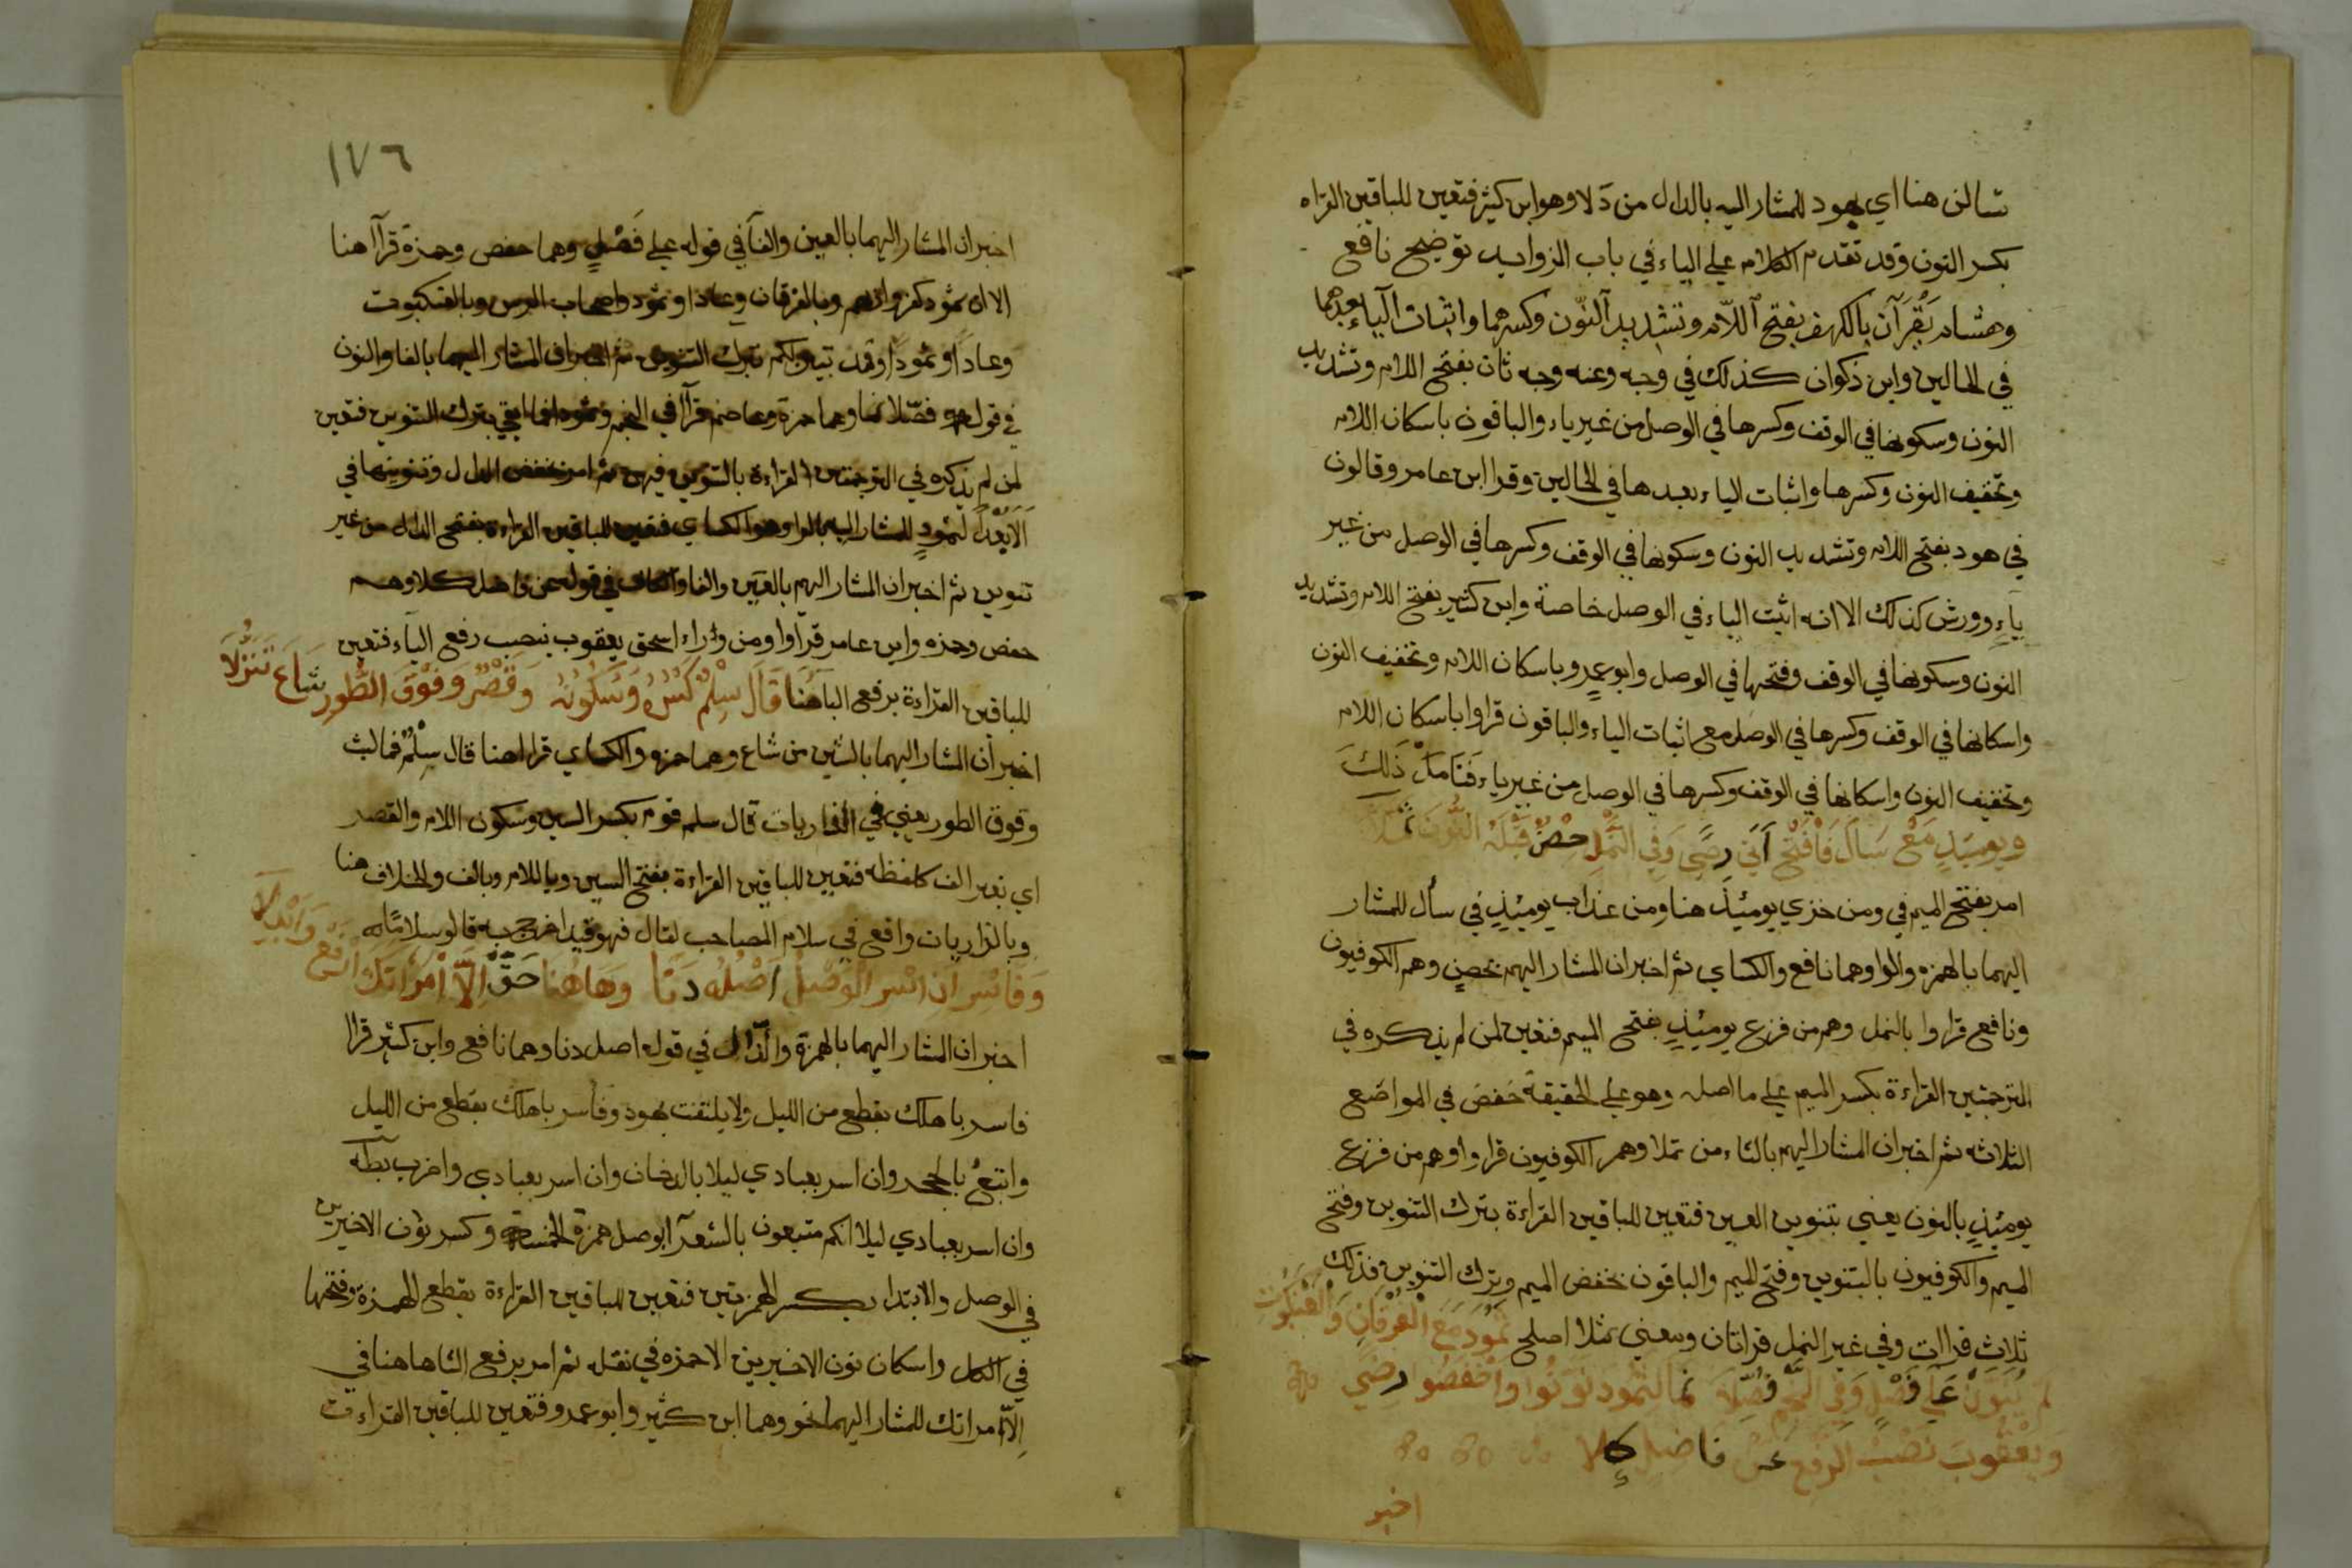 تسالن هنا اي بهود للمشار اليه بالدال من دلا وهو ابن كثير فتعين للباقين القراه
بكسر النون وقد تقدم الكلام علي الياء في باب الزوايد توضيح نافع
وهشام يقرآن بالكهف بفتح اللام وتشديد النون وكسرهما واثبات الياء بعدهما
في الحالين وابن ذكوان كذلك في وجه وعنه وجه ثان بفتح اللام وتشديد
النون وسكونها في الوقف وكسرها في الوصل من غير ياء والباقون باسكان اللام
وتخفيف النون وكسرها واثبات الياء بعدها في الحالين وقرا ابن عامر وقالون
في هود بفتح اللام وتشديد النون وسكونها في الوقف وكسرها في الوصل من غير
ياء وورش كذلك الا انه اثبت الياء في الوصل خاصة وابن كثير بفتح اللام وتشديد
النون وسكونها في الوقف وفتحها في الوصل وابو عمرو باسكان اللام وتخفيف النون
واسكانها في الوقف وكسرها في الوصل مع اثبات الياء والباقون قراوا باسكان اللام
وتخفيف النون واسكانها في الوقف وكسرها في الوصل من غير ياء فتامل ذلك
ويوميذ مع سال فافتح اتي رضي وفي النمل حصن قبله النون ثملا
امر بفتح الميم في ومن خزي يوميئذ هنا ومن عذاب يوميئذ في سأل للمشار
اليهما بالهمزه والرا وهما نافع والكساي ثم اخبر ان المشار اليهم بحصن وهم الكوفيون
ونافع قراوا بالنمل وهم من فزع يوميئذ بفتح الميم فتعين لمن لم يذكره في
الترجمتين القراءة بكسر الميم علي ما اصله وهو علي الحقيقة خفض في المواضع
الثلاثه ثم اخبر ان المشار اليهم بالثاء من ثملا وهم الكوفيون قراوا وهم من فزع
يوميئذ بالنون يعني بتنوين العين فتعين للباقين القراءة بترك التنوين وفتح
الميم والكوفيون بالتنوين وفتح الميم والباقون بخفض الميم وترك التنوين فذلك
ثلاث قراات وفي غير النمل قراتان ومعني ثملا اصلح ثمود مع الفرقان والعنكبوت
لم ينون علي فصل وفي النجم فصلا نما لثمود نونوا واخفضوا رضي
ويعقوب نصب الرفع عن فاضل كلا
اخبر
١٧٦
اخبر ان المشار اليهما بالعين والفا في قوله علي فصل وهما حفص وحمزة قرآ هنا
الا ان ثمود كفروا ربهم وبالفرقان وعادا وثمود واصحاب الرس وبالعنكبوت
وعادا وثمودا وقد تبين لكم بترك التنوين ثم اخبر ان المشار اليهما بالفا والنون
في قوله فصلا نما وهما حمزة وعاصم قرآ في النجم وثمود فما ابقي بترك التنوين فتعين
لمن لم يذكره في الترجمتين القراءة بالتنوين فيهن ثم امر بخفض الدال وتنوينها في
الا بعدا لثمود للمشار اليه بالرا وهو الكساي فتعين للباقين القراءة بفتح الدال من غير
تنوين ثم اخبر ان المشار اليهم بالعين والفا والكاف في قوله عن فاضل كلا وهم
حفص وحمزه وابن عامر قراوا ومن وراء اسحق يعقوب بنصب رفع الباء فتعين
للباقين القراءة برفع الباء هنا قال سلم كسره وسكونه وقصر وفوق الطور شاع تنزلا
اخبر ان المشار اليهما بالشين من شاع وهما حمزه والكساي قراا هنا قال سلم فما لبث
وفوق الطور يعني في الذاريات قال سلم قوم بكسر السين وسكون اللام والقصر
اي بغير الف كلفظه فتعين للباقين القراءة بفتح السين واللام وبالف والخلاف هنا
وبالذاريات واقع في سلام المصاحب لقال فهو قيد اخرج به قالوا سلاما
وفاسر ان اسر الوصل اصل دنا وها هنا حق الا امراتك ارفع وابدلا
اخبر ان المشار اليهما بالهمزة والدال في قوله اصل دنا وهما نافع وابن كثير قراا
فاسر باهلك بقطع من الليل ولا يلتفت بهود وفاسر باهلك بقطع من الليل
واتبع بالحجر وان اسر بعبادي ليلا بالدخان وان اسر بعبادي واضرب بطه
وان اسر بعبادي ليلا انكم متبعون بالشعرا بوصل همزة الخمسة وكسر نون الاخيرين
في الوصل والابتدا بكسر الهمزتين فتعين للباقين القراءة بقطع الهمزة وفتحها
في الكل واسكان نون الاخيرين الا حمزه في نقله ثم امر برفع التا ها هنا في
الا امراتك للمشار اليهما بحق وهما ابن كثير وابو عمرو فتعين للباقين القراءت